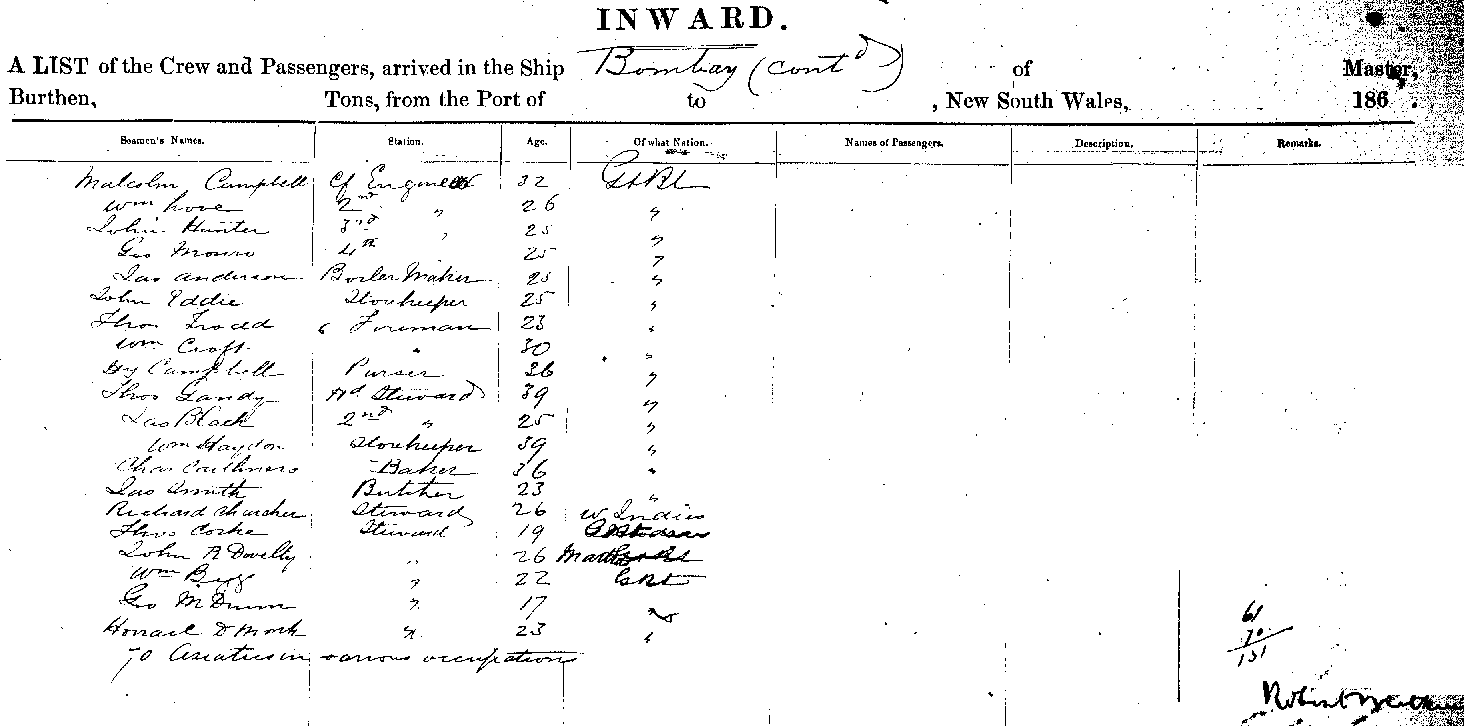 INWARD.
A LIST of the Crew and Passengers, arrived in the Ship Bombay (contd) of Master,
Burthen, Tons, from the Port of to , New South Wales, 186 .
Seamen's Names. Station. Age. Of what Nation. Names of Passengers. Description. Remarks.
Malcolm Campbell Cf Engineer 32 Gt Bt
Wm Love 2nd " 26 "
John Hunter 3rd " 25 "
Geo Monro 4th 25 "
Jas Anderson Boiler Maker 25 "
John Eddie Storekeeper 25 "
Thos Trodd Foreman 23 "
Wm Croft " 30 "
Hy Campbell Purser 36 "
Thos Gandy Hd Steward 39 "
Jas Black 2nd " 25 "
Wm Haydon Storekeeper 39 "
Chas Caithness Baker 36 "
Jas Smith Butcher 23 "
Richard Churcher Steward 26 W Indies
Thos Corke Steward 19
John R Dovelty " 26
Wm " 22 G Bt
Geo McDunn " 17 "
D Monk " 23 "
70 Asiatics in various occupations
61
70
131
Robert